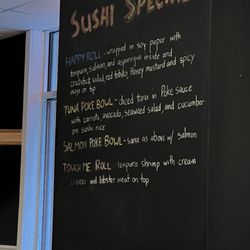 SUSHI SPECIAL
HAPPY ROLL - wrapped in soy paper with
tempura, salmon, and asparagus inside and
crabstick salad, red tobiko, honey mustard and spicy
mayo on top
TUNA POKE BOWL - diced tuna in Poke sauce
with carrots, avocado, seaweed salad, and cucumber
on sushi rice
SALMON POKE BOWL - same as above w/ salmon
TOUCH ME ROLL - tempura shrimp with cream
cheese and lobster meat on top